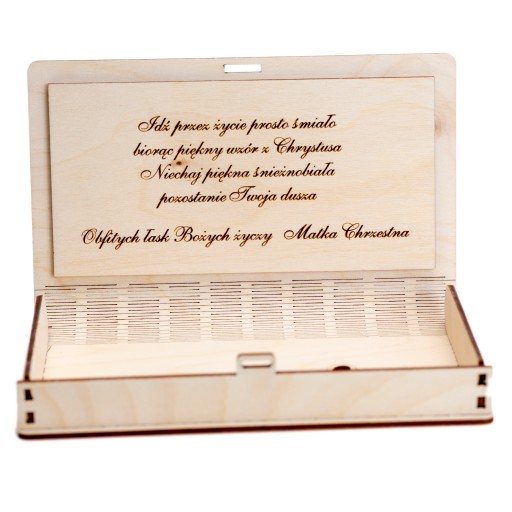 Idź przez życie prosto śmiało
biorąc piękny wzór z Chrystusa
Niechaj piękna śnieżnobiała
pozostanie Twoja dusza
Obfitych łask Bożych życzy Matka Chrzestna